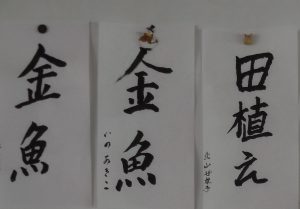 金魚
金魚
いのあきこ
田植え